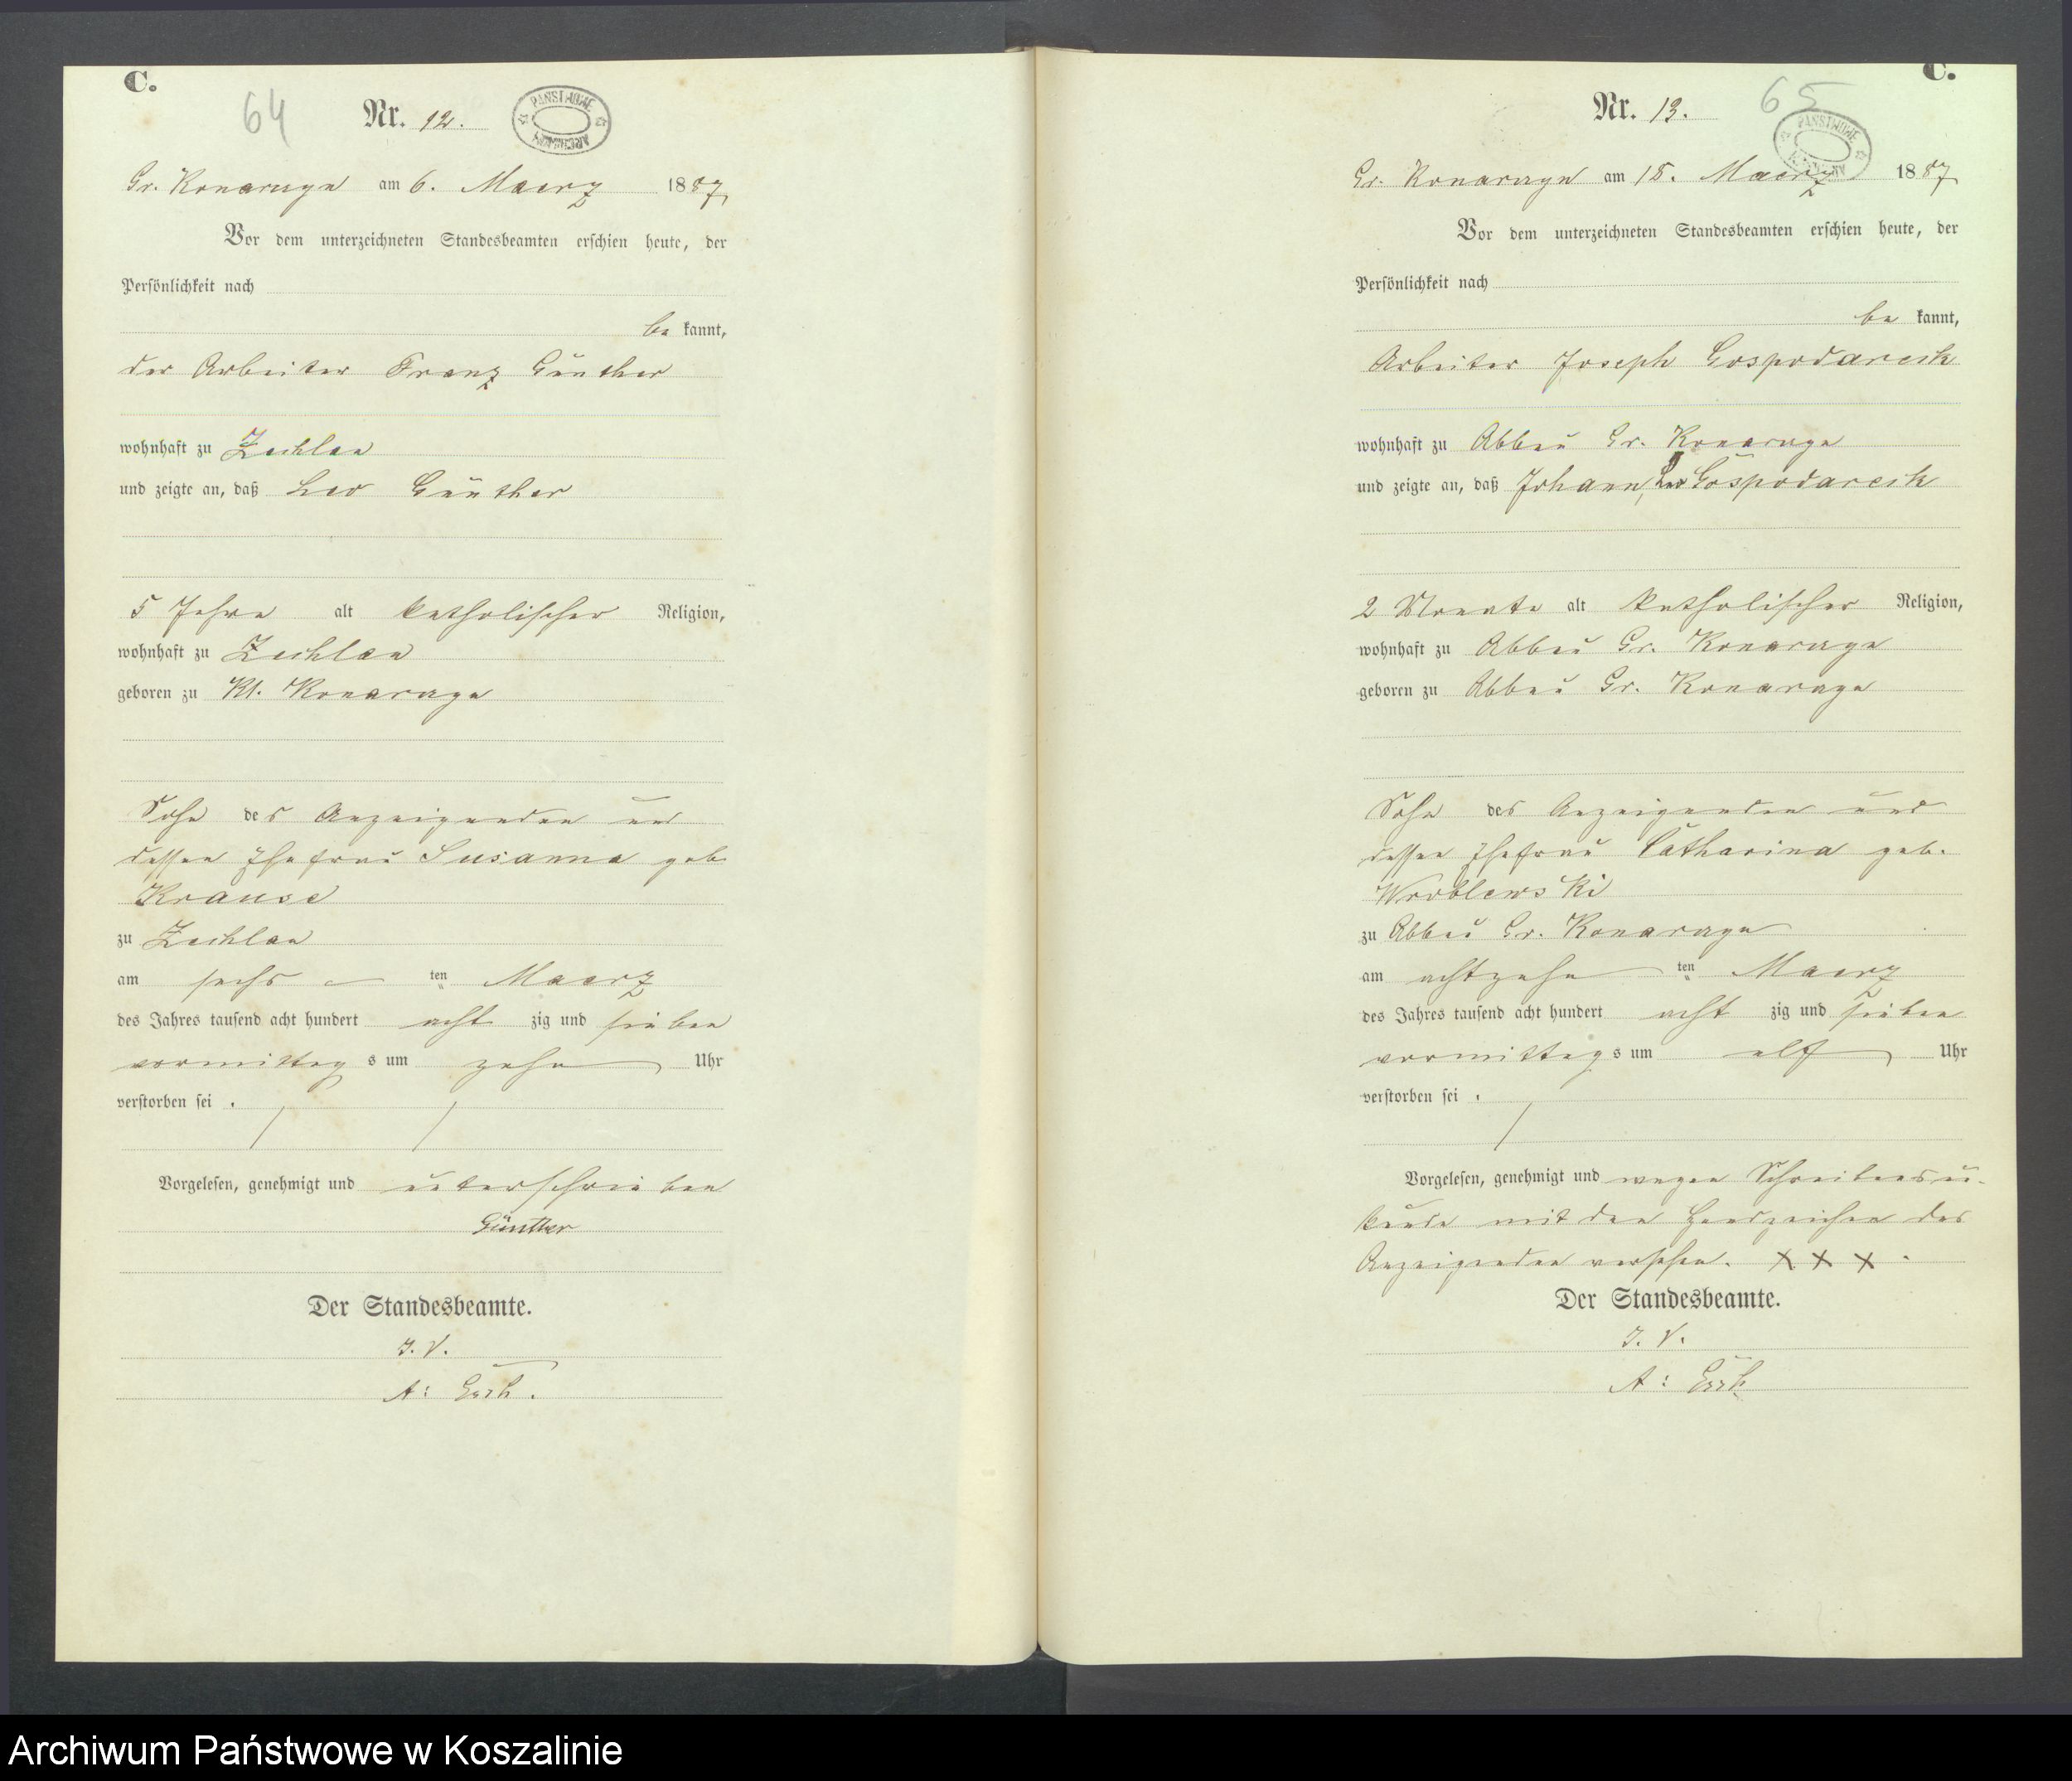 C.
64
Nr. 12.
PAŃSTWOWE ARCHIWUM
Gr. Konarzyn am 6. Maerz 1887
Vor dem unterzeichneten Standesbeamten erschien heute, der
Persönlichkeit nach
be kannt,
der Arbeiter Franz Günther
wohnhaft zu Zechlau
und zeigte an, daß Leo Günther
5 Jahre alt katholischer Religion,
wohnhaft zu Zechlau
geboren zu Kl. Konarzyn
Sohn des Anzeigenden und
dessen Ehefrau Susanna geb.
Krause
zu Zechlau
am sechs ten Maerz
des Jahres tausend acht hundert acht zig und sieben
vormittag s um zehn Uhr
verstorben sei .
Vorgelesen, genehmigt und unterschrieben
Günther
Der Standesbeamte.
I. V.
C.
65
Nr. 13.
PAŃSTWOWE
Gr. Konarzyn am 18. Maerz 1887
Vor dem unterzeichneten Standesbeamten erschien heute, der
Persönlichkeit nach
be kannt,
Arbeiter Joseph Gospodarcik
wohnhaft zu Abbau Gr. Konarzyn
und zeigte an, daß Johann, Leo Gospodarcik
2 Monate alt katholischer Religion,
wohnhaft zu Abbau Gr. Konarzyn
geboren zu Abbau Gr. Konarzyn
Sohn des Anzeigenden und
dessen Ehefrau Catharina geb.
Wroblewski
zu Abbau Gr. Konarzyn
am achtzehn ten Maerz
des Jahres tausend acht hundert acht zig und sieben
vormittag s um elf Uhr
verstorben sei .
Vorgelesen, genehmigt und wegen Schreibensun-
kunde mit den Handzeichen des
Anzeigenden versehen. X X X .
Der Standesbeamte.
I. V.
Archiwum Państwowe w Koszalinie